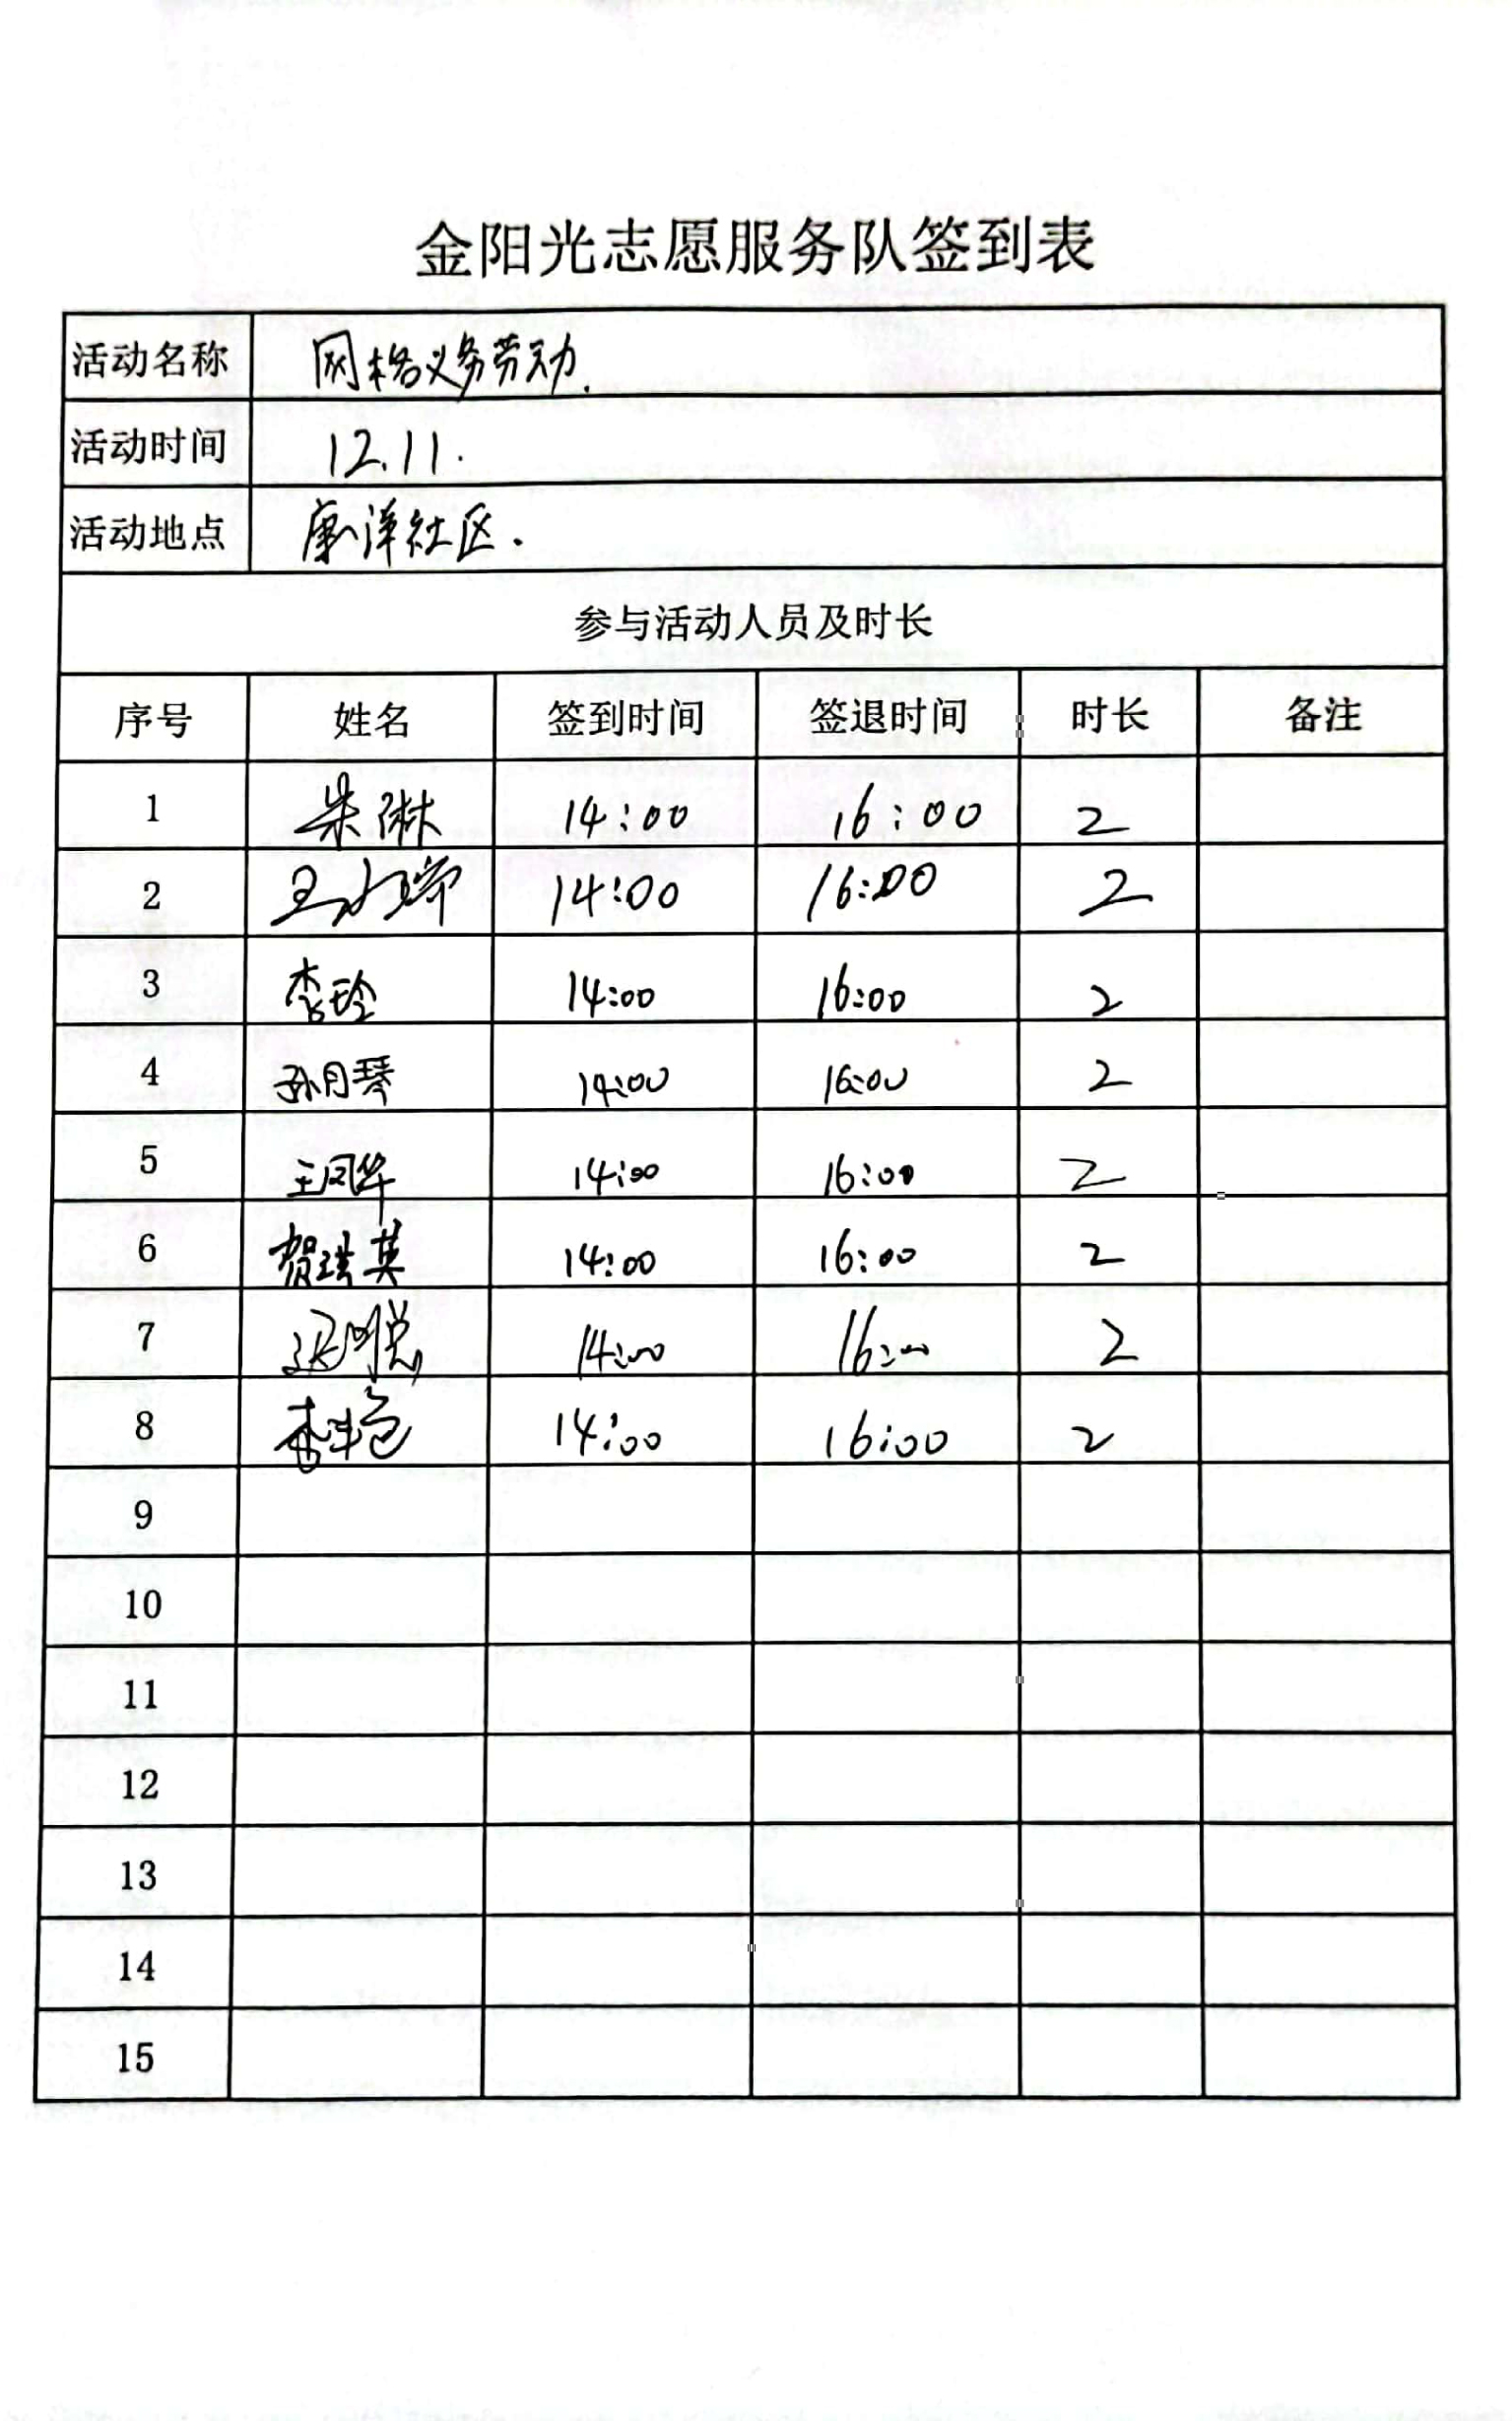 金阳光志愿服务队签到表
活动名称 网格义务劳动.
活动时间 12.11.
活动地点 康洋社区.
参与活动人员及时长
序号 姓名 签到时间 签退时间 时长 备注
1 朱琳 14:00 16:00 2
2 14:00 16:00 2
3 李玲 14:00 16:00 2
4 孙月琴 14:00 16:00 2
5 王凤华 14:00 16:00 2
6 贺瑞英 14:00 16:00 2
7 14:00 16:00 2
8 14:00 16:00 2
9
10
11
12
13
14
15